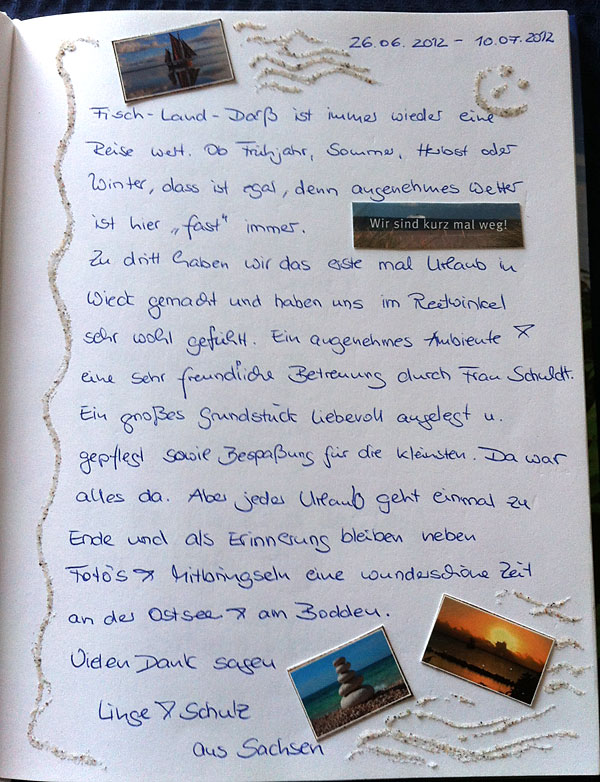 26.06.2012 - 10.07.2012
Fisch-Land-Darß ist immer wieder eine
Reise wert. Ob Frühjahr, Sommer, Herbst oder
Winter, dass ist egal, denn angenehmes Wetter
ist hier „fast“ immer.
Wir sind kurz mal weg!
Zu dritt haben wir das erste mal Urlaub in
Wieck gemacht und haben uns im Reetwinkel
sehr wohl gefühlt. Ein angenehmes Ambiente &
eine sehr freundliche Betreuung durch Frau Schuldt.
Ein großes Grundstück liebevoll angelegt u.
gepflegt sowie Bespaßung für die kleinsten. Da war
alles da. Aber jeder Urlaub geht einmal zu
Ende und als Erinnerung bleiben neben
Foto's & Mitbringseln eine wunderschöne Zeit
an der Ostsee & am Bodden.
Vielen Dank sagen
Linge & Schulz
aus Sachsen